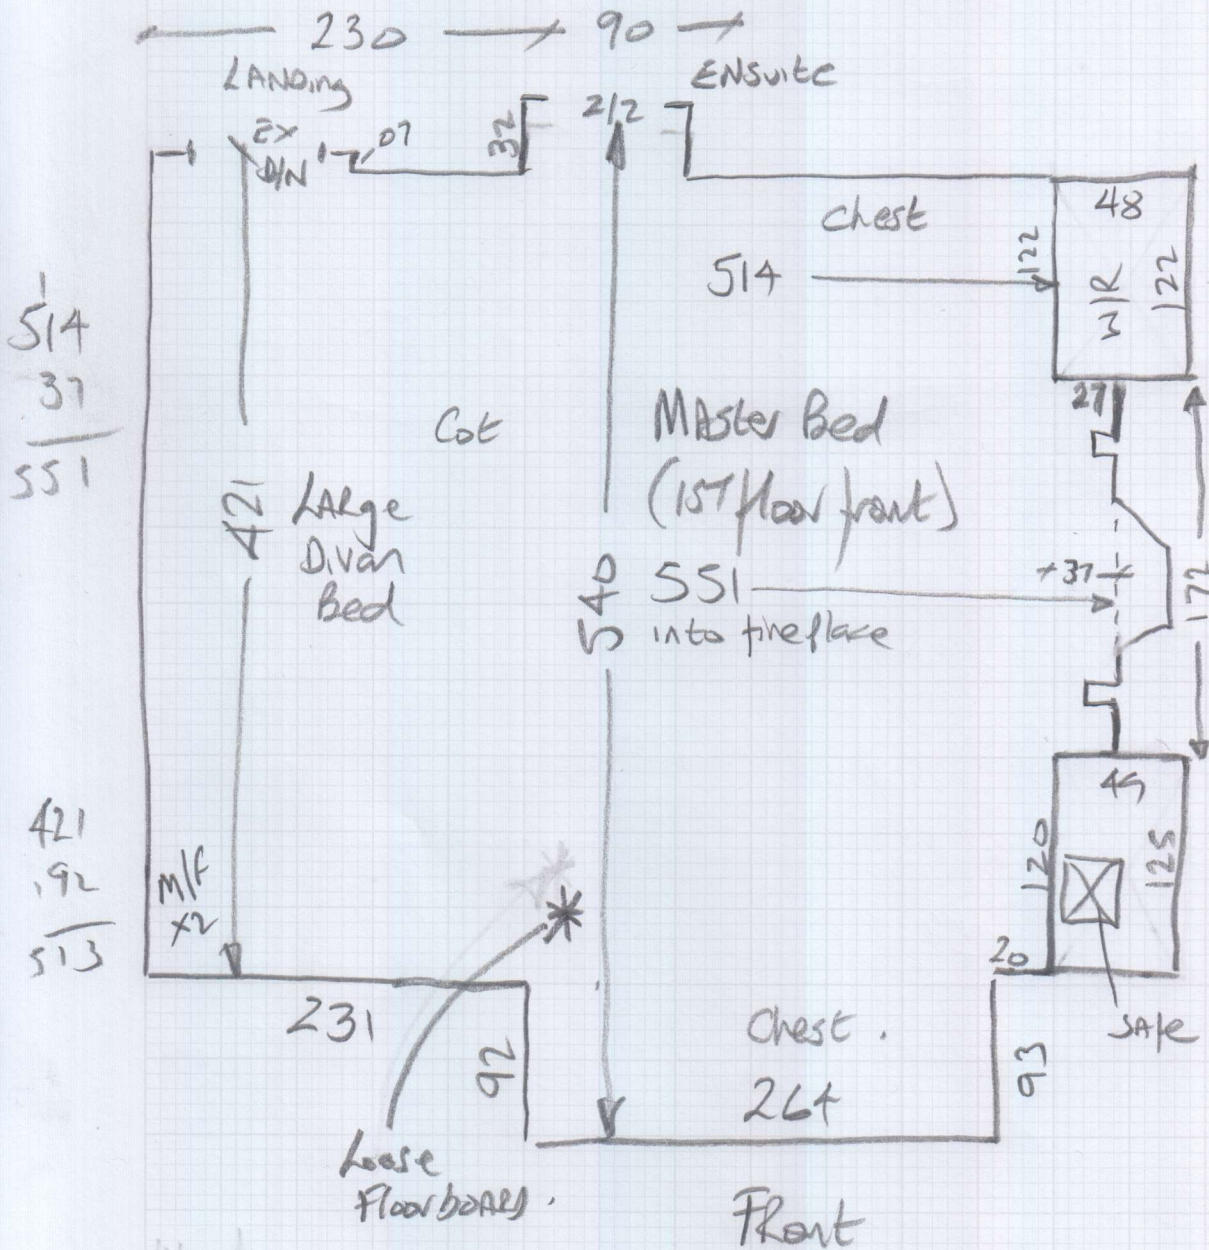 230
90
LANDing
ENSuite
EX
D/N
07
32
2/2
48
Chest
514
122
122
514
37
551
27
Cot
MAster Bed
(1ST floor front)
421
LARge
Divan
Bed
540
551
into fireplace
+37
172
49
421
192
513
M/F
x2
120
125
20
231
92
Chest.
264
93
SAfe
Loose
FloorboARDS.
FRont